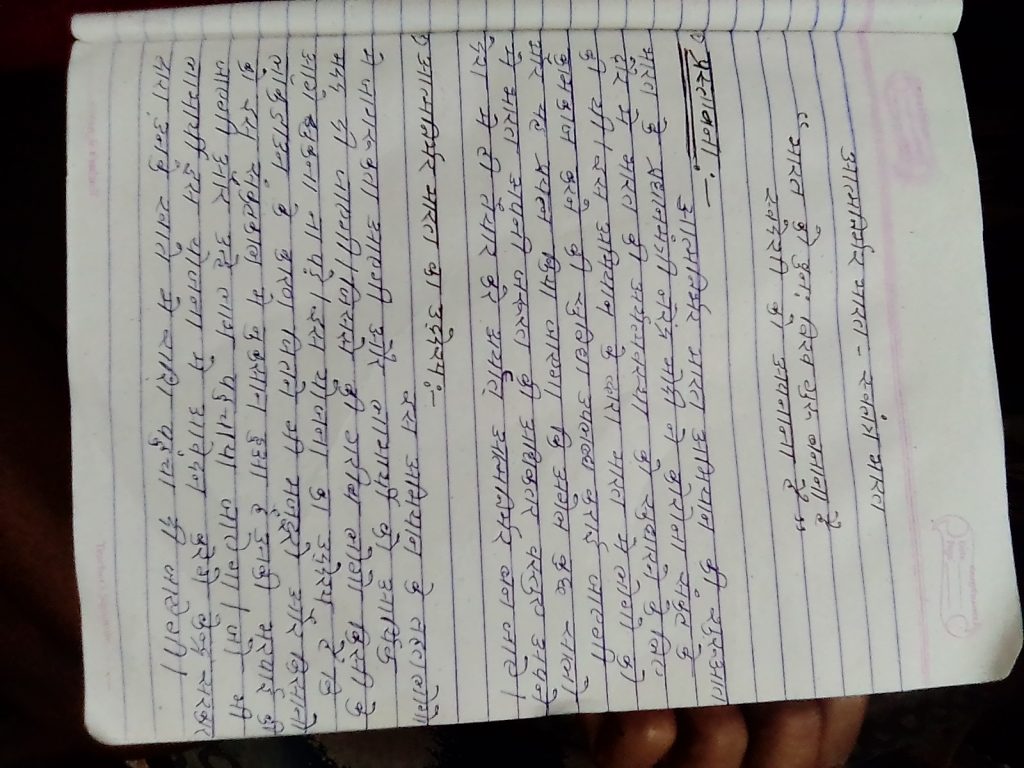 आत्मनिर्भर भारत - स्वतंत्र भारत
“ भारत को पुनः विश्व गुरु बनाना है
स्वदेशी को अपनाना है ”
प्रस्तावना :-
आत्मनिर्भर भारत अभियान की शुरुआत
भारत के प्रधानमंत्री नरेन्द्र मोदी ने कोरोना संकट के
दौर में भारत की अर्थव्यवस्था को सुधारने के लिए
की थी। इस अभियान के द्वारा भारत में लोगों को
कामकाज करने की सुविधा उपलब्ध कराई जाएगी
और यह प्रयत्न किया जाएगा कि अगले कुछ सालों
में भारत अपनी जरूरत की अधिकतर वस्तुएं अपने
देश में ही तैयार करे अर्थात् आत्मनिर्भर बन जाये।
आत्मनिर्भर भारत का उद्देश्य :-
इस अभियान के तहत लोगो
में जागरूकता आएगी और लाभार्थी को आर्थिक
मदद दी जाएगी। जिससे की गरीब लोगो किसी के
आगे झुकना ना पड़े। इस योजना का उद्देश्य है कि
लॉकडाउन के कारण जितने भी मजदूरो और किसानो
को इस संकटकाल में नुकसान हुआ है उनकी भरपाई की
जाएगी और उन्हे लाभ पहुचाया जायेगा। जो भी
लाभार्थी इस योजना मे आवेदन करेगे केन्द्र सरकार
द्वारा उनके खाते मे राशि पहुचा दी जायेगी।